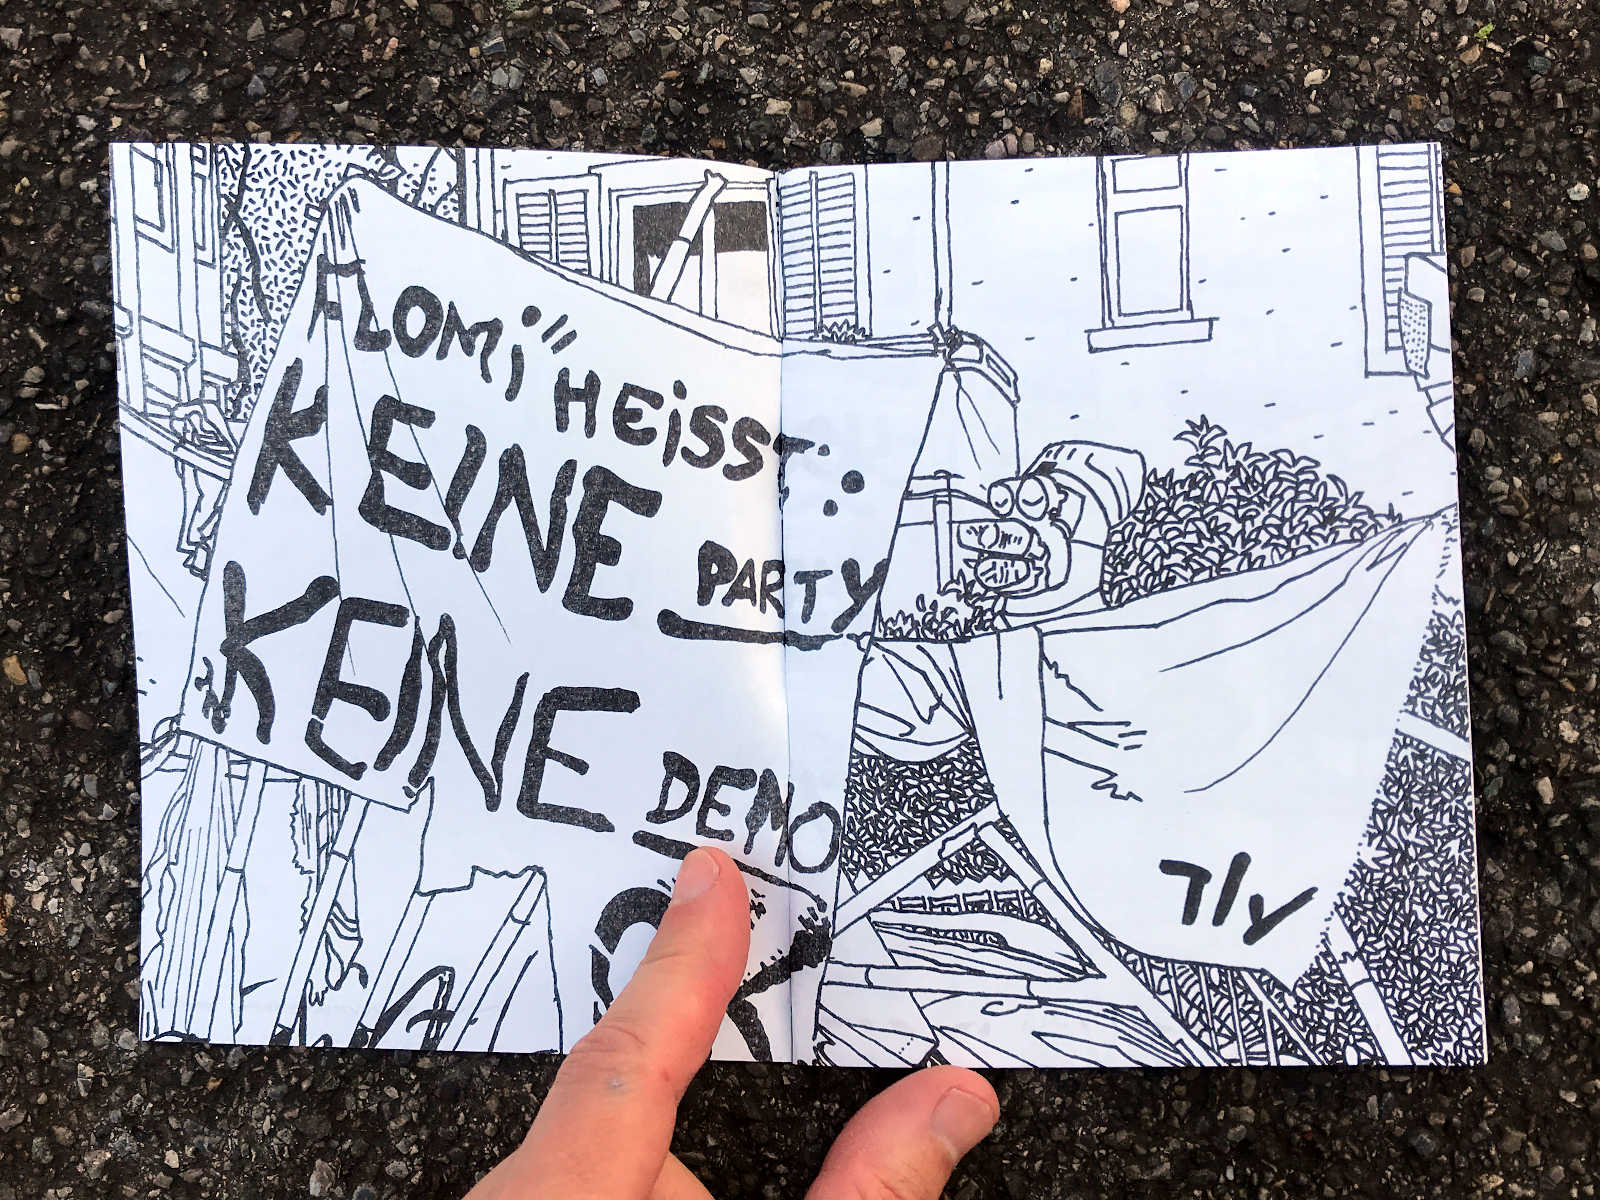 FLOMi''' HEiSST:
KEINE PARTY
KEINE DEMO